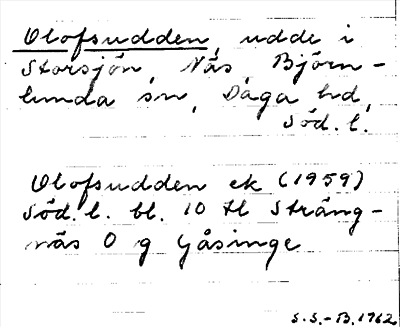 Olofsudden, udde i
Storsjön, Näs, Björn-
lunda sn, Daga hd,
Söd. l.
Olofsudden ek (1959)
Söd. l. bl. 10 tl Sträng-
näs O g Gåsinge
S.S.-B. 1962